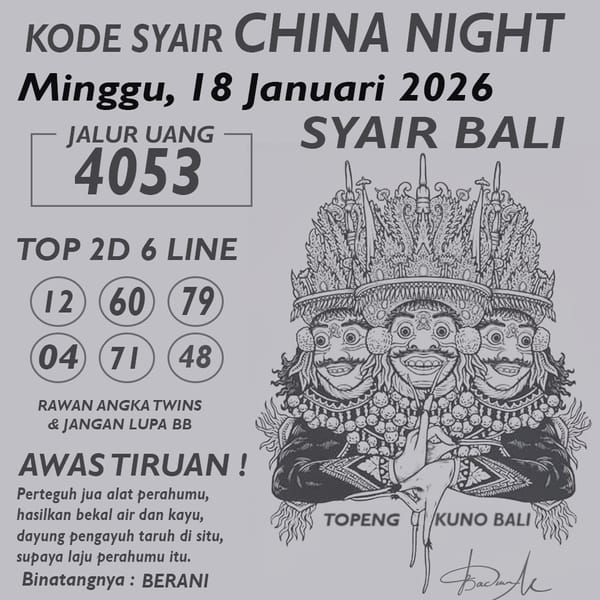 KODE SYAIR CHINA NIGHT
Minggu, 18 Januari 2026
JALUR UANG
4053
SYAIR BALI
TOP 2D 6 LINE
12 60 79
04 71 48
RAWAN ANGKA TWINS
& JANGAN LUPA BB
AWAS TIRUAN !
Perteguh jua alat perahumu,
hasilkan bekal air dan kayu,
dayung pengayuh taruh di situ,
supaya laju perahumu itu.
Binatangnya : BERANI
TOPENG KUNO BALI